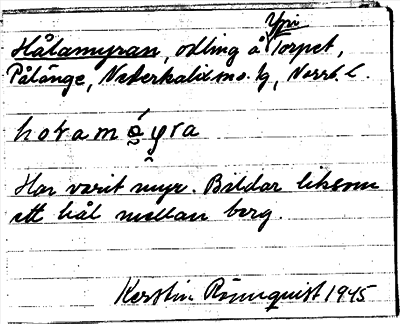 Ypri
Hålamyran, odling å Torpet,
Pålänge, Nederkalix sn o. tg, Norrb. l.
Har varit myr. Bildar liksom
ett hål mellan berg.
Kerstin Rönnquist 1945